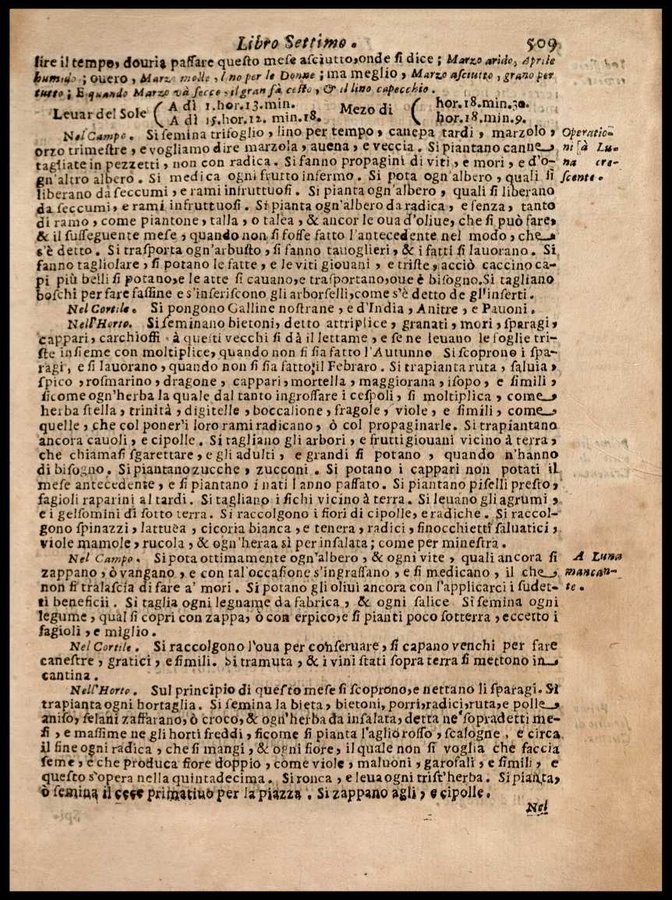 Libro Settimo. 509
lire il tempo, douria passare questo mese asciutto, onde si dice; Marzo arido, Aprile
humido; ouero, Marzo molle, lino per le Donne; ma meglio, Marzo asciutto, grano per
tutto; E quando Marzo và secco, il gran fà cesto, & il lino capecchio.
Leuar del Sole ( A dì 1. hor. 13. min. Mezo dì ( hor. 18. min. 30.
A dì 15. hor. 12. min. 18. hor. 18. min. 9.
Nel Campo. Si semina trifoglio, lino per tempo, canepa tardi, marzolo, Operatio-
orzo trimestre, e vogliamo dire marzola, auena, e veccia. Si piantano canne ni [à Lu-
tagliate in pezzetti, non con radica. Si fanno propagini di viti, e mori, e d'o- na cre-
gn'altro albero. Si medica ogni frutto infermo. Si pota ogn'albero, quali si scente.
liberano da seccumi, e rami infruttuosi. Si pianta ogn'albero, quali si liberano
da seccumi, e rami infruttuosi. Si pianta ogn'albero da radica, e senza, tanto
di ramo, come piantone, talla, o talea, & ancor le oua d'oliue, che si può fare,
& il susseguente mese, quando non si fosse fatto l'antecedente nel modo, che
s'è detto. Si trasporta ogn'arbusto, si fanno tauoglieri, & i fatti si lauorano. Si
fanno tagliolare, si potano le fatte, e le viti giouani, e triste, acciò caccino ca-
pi più belli si potano, e le atte si cauano, e trasportano, oue è bisogno. Si tagliano
boschi per fare fassine e s'inseriscono gli arborselli, come s'è detto de gl'inserti.
Nel Cortile. Si pongono Galline nostrane, e d'India, Anitre, e Pauoni.
Nell'Horto. Si seminano bietoni, detto attriplice, granati, mori, sparagi,
cappari, carchioffi à questi vecchi si dà il lettame, e se ne leuano le foglie tri-
ste insieme con moltiplice, quando non si sia fatto l'Autunno Si scoprono i spa-
ragi, e si lauorano, quando non si sia fatto il Febraro. Si trapianta ruta, saluia,
spico, rosmarino, dragone, cappari, mortella, maggiorana, isopo, e simili,
sicome ogn'herba la quale dal tanto ingrossare i cespoli, si moltiplica, come
herba stella, trinità, digitelle, boccalione, fragole, viole, e simili, come
quelle, che col poner'i loro rami radicano, ò col propaginarle. Si trapiantano
ancora cauoli, e cipolle. Si tagliano gli arbori, e frutti giouani vicino à terra,
che chiamasi sgarettare, e gli adulti, e grandi si potano, quando n'hanno
di bisogno. Si piantano zucche, zucconi. Si potano i cappari non potati il
mese antecedente, e si piantano i nati l'anno passato. Si piantano piselli presto,
fagioli raparini al tardi. Si tagliano i fichi vicino à terra. Si leuano gli agrumi,
e i gelsomini di sotto terra. Si raccolgono i fiori di cipolle, e radiche. Si raccol-
gono spinazzi, lattuca, cicoria bianca, e tenera, radici, finocchietti saluatici,
viole mamole, rucola, & ogn'heraa sì per insalata; come per minestra.
Nel Campo. Si pota ottimamente ogn'albero, & ogni vite, quali ancora si A Luna
zappano, ò vangano, e con tal'occasione s'ingrassano, e si medicano, il che mancan-
non si tralascia di fare a' mori. Si potano gli oliui ancora con l'applicarci i sudet- te.
ti beneficii. Si taglia ogni legname da fabrica, & ogni salice Si semina ogni
legume, qual si copri con zappa, ò con erpico, e si pianti poco sotterra, eccetto i
fagioli, e miglio.
Nel Cortile. Si raccolgono l'oua per conseruare, si capano venchi per fare
canestre, gratici, e simili. Si tramuta, & i vini stati sopra terra si mettono in
cantina.
Nell'Horto. Sul principio di questo mese si scoprono, e nettano li sparagi. Si
trapianta ogni hortaglia. Si semina la bieta, bietoni, porri, radici, ruta, e polle
aniso, selani zaffarano, ò croco, & ogn'herba da insalata, detta ne' sopradetti me-
si, e massime ne gli horti freddi, sicome si pianta l'aglio rosso, scalogne, e circa
il fine ogni radica, che si mangi, & ogni fiore, il quale non si voglia che faccia
seme, e che produca fiore doppio, come viole, maluoni, garofali, e simili, e
questo s'opera nella quintadecima. Si ronca, e leua ogni trist'herba. Si pianta,
ò semina il cece primatiuo per la piazza. Si zappano agli, e cipolle.
Nel